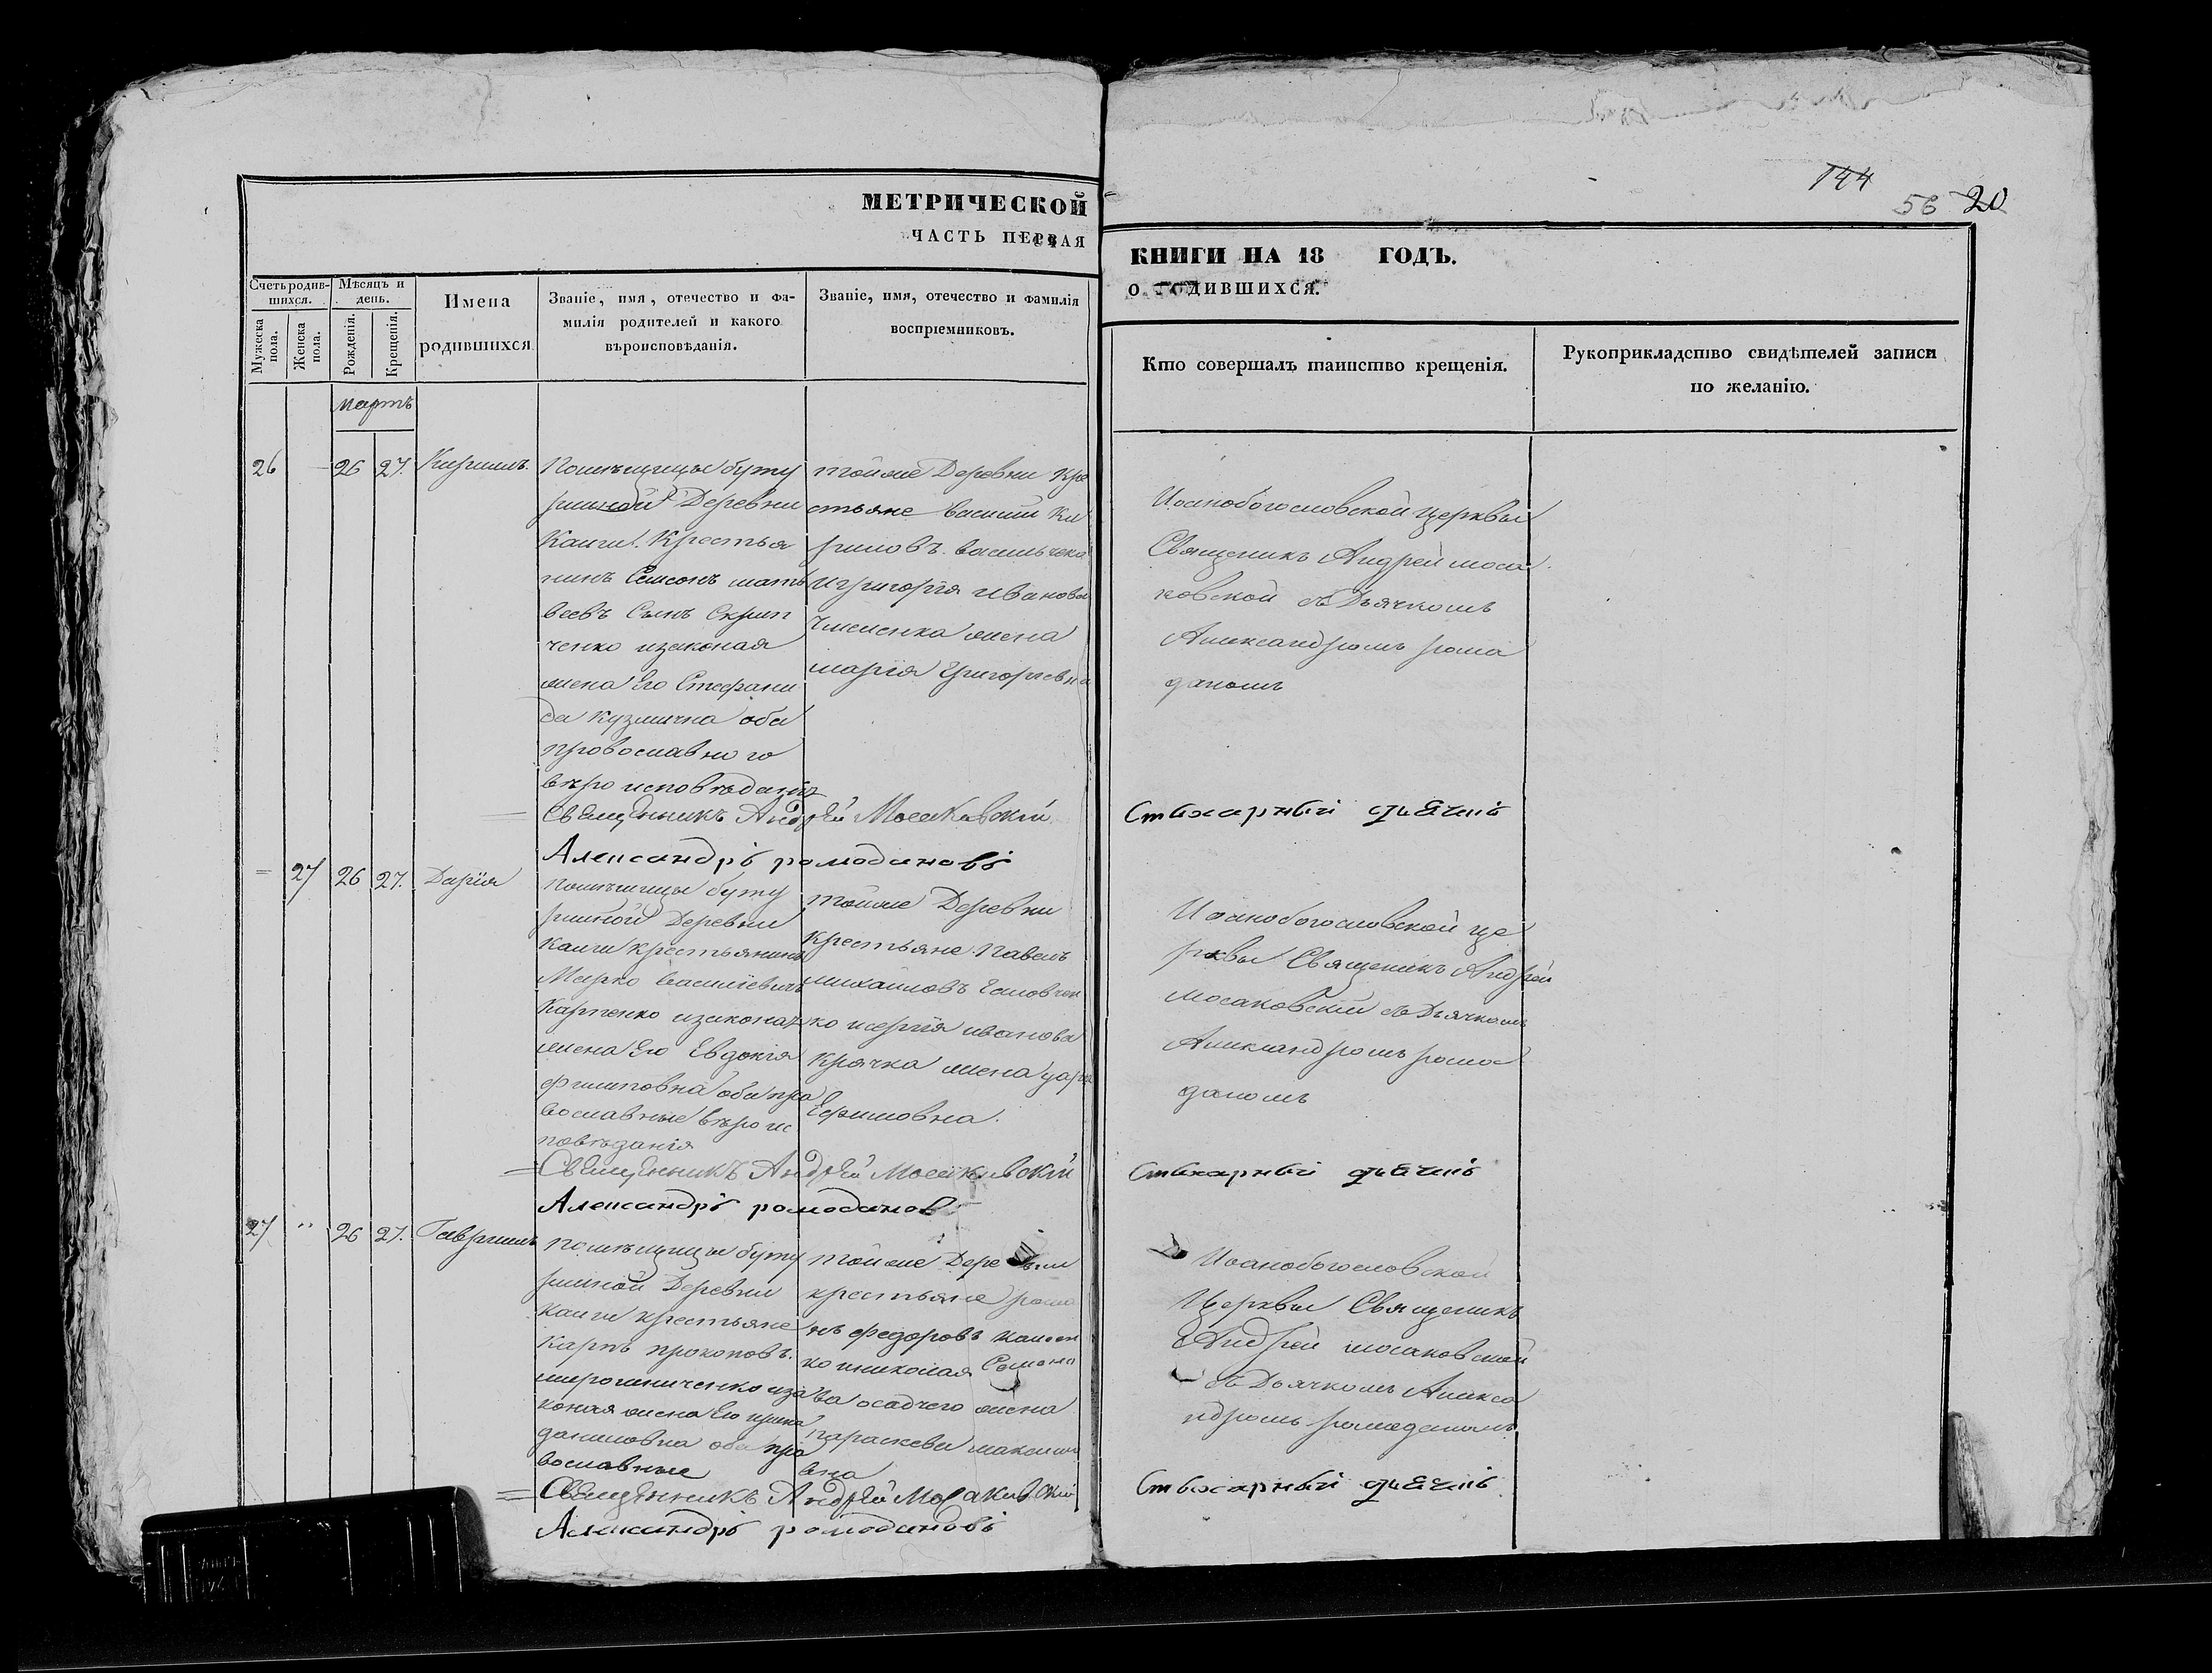 144
56 20
МЕТРИЧЕСКОЙ
ЧАСТЬ ПЕРВАЯ
КНИГИ НА 18 ГОДЪ.
О РОДИВШИХСЯ.
Счетъ родив-
шихся.
Мужеска
пола.
Женска
пола.
Мѣсяцъ и
день.
Рожденія.
Крещенія.
Имена
родившихся
Званіе, имя, отечество и фа-
милія родителей и какого
вѣроисповѣданія.
Званіе, имя, отечество и фамилія
воспріемниковъ.
Кто совершалъ таинство крещенія.
Рукоприкладство свидѣтелей записи
по желанію.
Мартъ
26
26 27.
Кирилъ
Помѣщицы буту
рлиной Деревни
Каиги. Крестья
нинъ Семсонъ матъ
веевъ Сынъ Скрип
ченко изаконая
жена Его Стефани
да Кузмична оба
провославного
вѣроисповѣданія
тойже Деревни Кре
стьяне Василий Ки
риловъ. васильченко
и григорія Иванова
жена
марія Григоріевна
Иоанобогословской Церквы
Священикъ Андрей моса
ковской съ Дьячкомъ
Александромъ рома
даномъ
Священникъ Андрей Мосаковскій
Стихарный дьячекъ
Александръ ромодановъ
27 26 27.
Дарія
помѣщицы буту
рлиной Деревни
Каиги крестьянинъ
Марко Василіевичъ
Карпенко изаконая
жена Его Евдокія
филиповна оба пра
вославные вѣроис
повѣданія
тойже Деревни
Крестьяне Павелъ
михаиловъ
иванова
Крячка жена
Ефимовна.
Иоанобогословской це
рквы Священикъ Андрей
Мосаковский съ Дьячкомъ
Александромъ рома
даномъ
Священникъ Андрей Мосаковскій
Стихарный дьячекъ
Александръ ромодановъ
27 " 26 27.
Гавриилъ
помѣщицы буту
рлиной Деревни
Каиги крестьяне
Карпъ прокоповъ.
мирошниченко иза
коная жена Его ирина
даниловна оба пра
вославные
тойже Деревни
крестьяне рома
нъ федоровъ
ко иниколая Семоно
ва осадчего жена
параскева максимо
вна
Иоанобогословской
Церквы Священикъ
Андрей мосаковской
съ Дьячкомъ Алекса
ндромъ ромаданомъ
Священникъ Андрей Мосаковскій
Стихарный дьячекъ
Александръ ромодановъ